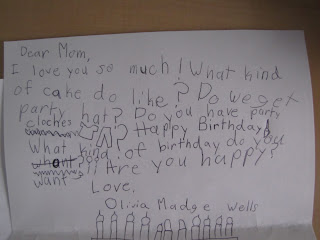 Dear Mom,
I love you so much! What kind
of cake do like? Do we get
party hat? Do you have party
cloches ? Happy Birthday!
What kind of birthday do you
want? !! Are you happy?
Love,
Olivia Madge Wells